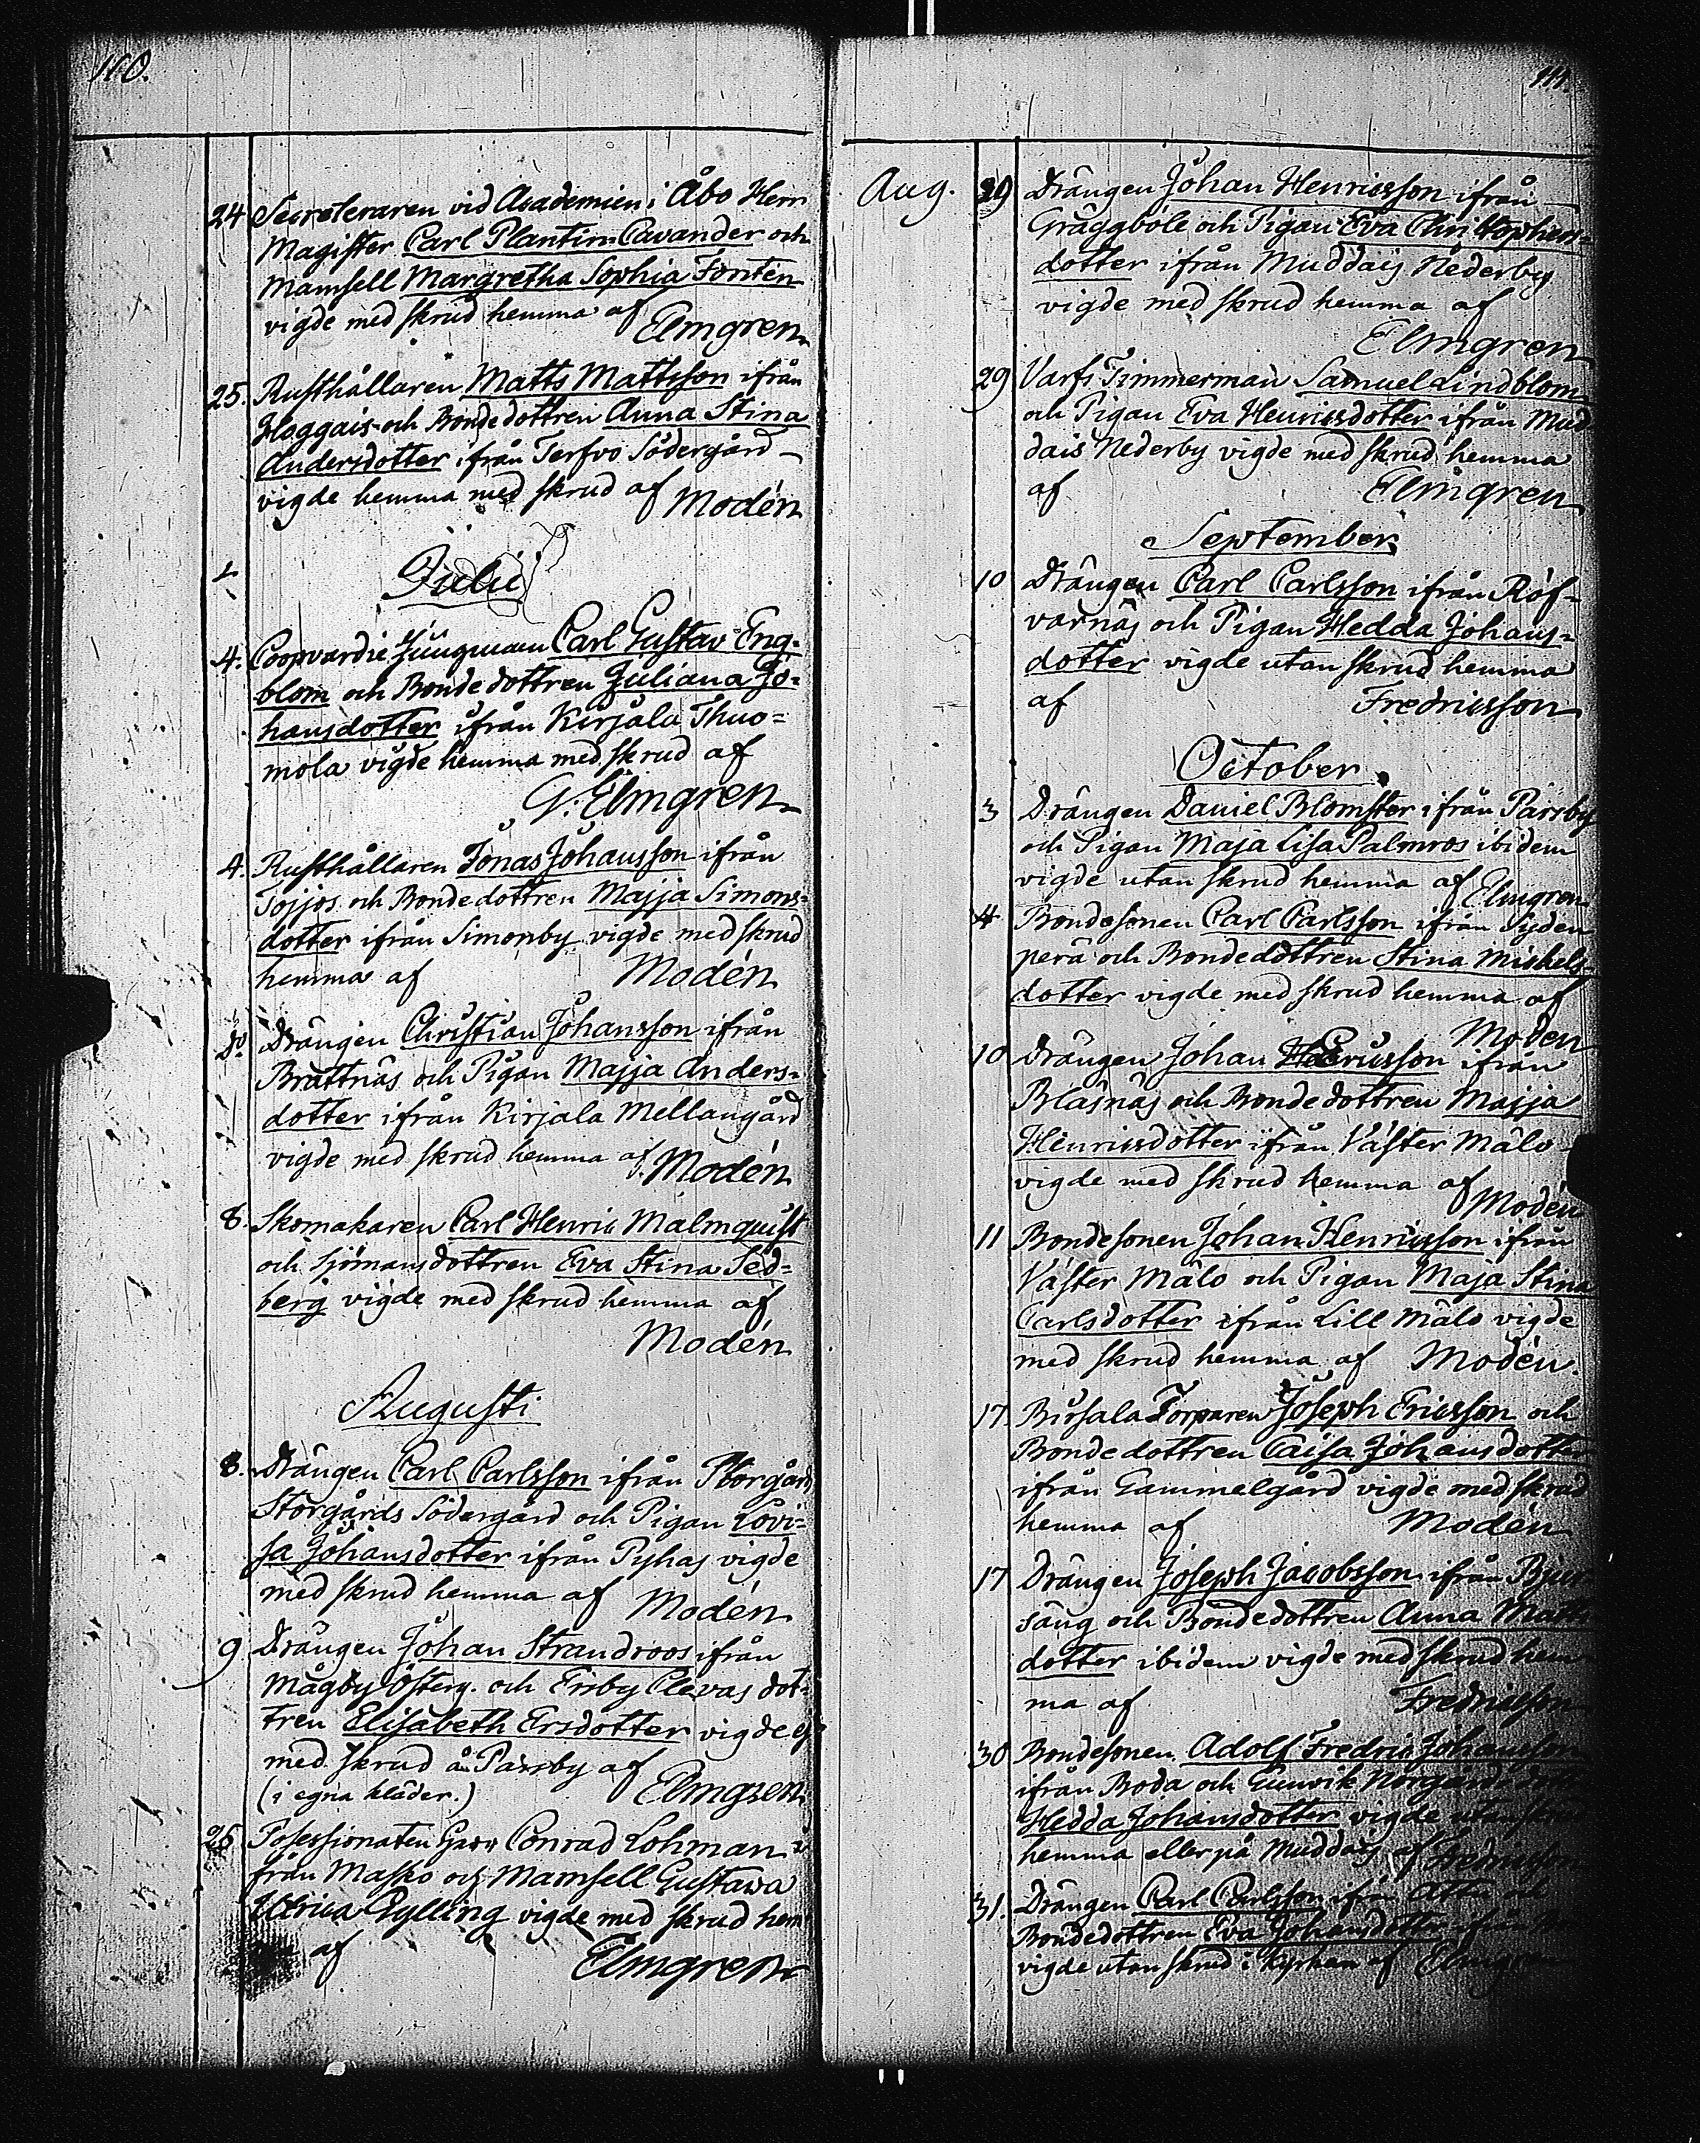 110.
24 Secreteraren vid Academien i Åbo Herr
Magister Carl Plantin Cavander och
Mamsell Margretha Sophia Forstén
vigde med skrud hemma af
Elmgren
25. Rusthållaren Matts Mattsson ifrån
Haggais och Bondedottren Anna Stina
Andersdotter ifrån Terfvo Södergård
vigde hemma med skrud af Modén
Julii
4. Coopvardie Jungman Carl Gustav Eng-
blom och Bondedottren Juliana Jo-
hansdotter ifrån Kirjala Thuo-
mola vigde hemma med skrud af
G. Elmgren
4. Rusthållaren Jonas Johansson ifrån
Tojjos och Bondedottren Majja Simons-
dotter ifrån Simonby vigde med skrud
hemma af Modén
do Drängen Christian Johansson ifrån
Brattnäs och Pigan Majja Anders-
dotter ifrån Kirjala Mellangård
vigde med skrud hemma af Modén
8. Skomakaren Carl Henric Malmquist
och Sjömansdottren Eva Stina Sed-
berg vigde med skrud hemma af
Modén
Augusti
8. Drängen Carl Carlsson ifrån
Storgårds Södergård och Pigan Lovi-
sa Johansdotter ifrån Pyhas vigde
med skrud hemma af Modén
9 Drängen Johan Strandroos ifrån
Mågby Österg. och Ersby Clevas dot-
tren Elisabeth Ersdotter vigde ej
med skrud å Parsby af
(i egna kläder.) Elmgren
26 Possessionaten Conrad Lohman i
från Masko och Mamsell Gustava
Ulrica Gylling vigde med skrud hem
af Elmgren
111.
Aug. 29 Drängen Johan Henricsson ifrån
Gräggböle och Pigan Eva Christophers-
dotter ifrån Muddais Nederby
vigde med skrud hemma af
Elmgren
29 Varfs Timmerman Samuel Lindblom
och Pigan Eva Henricsdotter ifrån Mud-
dais Nederby vigde med skrud hemma
af Elmgren
September
10 Drängen Carl Carlsson ifrån Röf-
varnäs och Pigan Hedda Johans-
dotter vigde utan skrud hemma
af Fredricsson
October
3 Drängen Daniel Blomster ifrån Parsby
och Pigan Maja Lisa Palmros ibidem
vigde utan skrud hemma af Elmgren
4 Bondesonen Carl Carlsson ifrån Syden
perä och Bondedottren Stina Michels
dotter vigde med skrud hemma af
Modén
10 Drängen Johan Ericsson ifrån
Bläsnäs och Bondedottren Majja
Henricsdotter ifrån Väster Mälo
vigde med skrud hemma af
Modén
11 Bondesonen Johan Henricsson ifrån
Väster Mälo och Pigan Maja Stina
Carlsdotter ifrån Lill Mälo vigde
med skrud hemma af Modén.
17 Torparen Joseph Ericsson och
Bondedottren Caisa Johansdotter
ifrån Gammelgård vigde med skrud
hemma af Modén
17 Drängen Joseph Jacobsson ifrån Bjur
säng och Bondedottren Anna Matts
dotter ibidem vigde med skrud hem
ma af Fredricsson
30 Bondesonen Adolf Fredric Johansson
ifrån Boda och Gunvik Norgårds
Hedda Johansdotter vigde utan skrud
hemma eller på Muddais af Fredricsson
31. Drängen Carl Carlsson ifrån Attu och
Bondedottren Eva Johansdotter ifrån
vigde utan skrud i Kyrkan af Elmgren